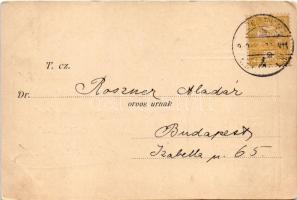 T. cz.
Dr. Roszner Aladár
orvos urnak
Budapest
Izabella u. 65.